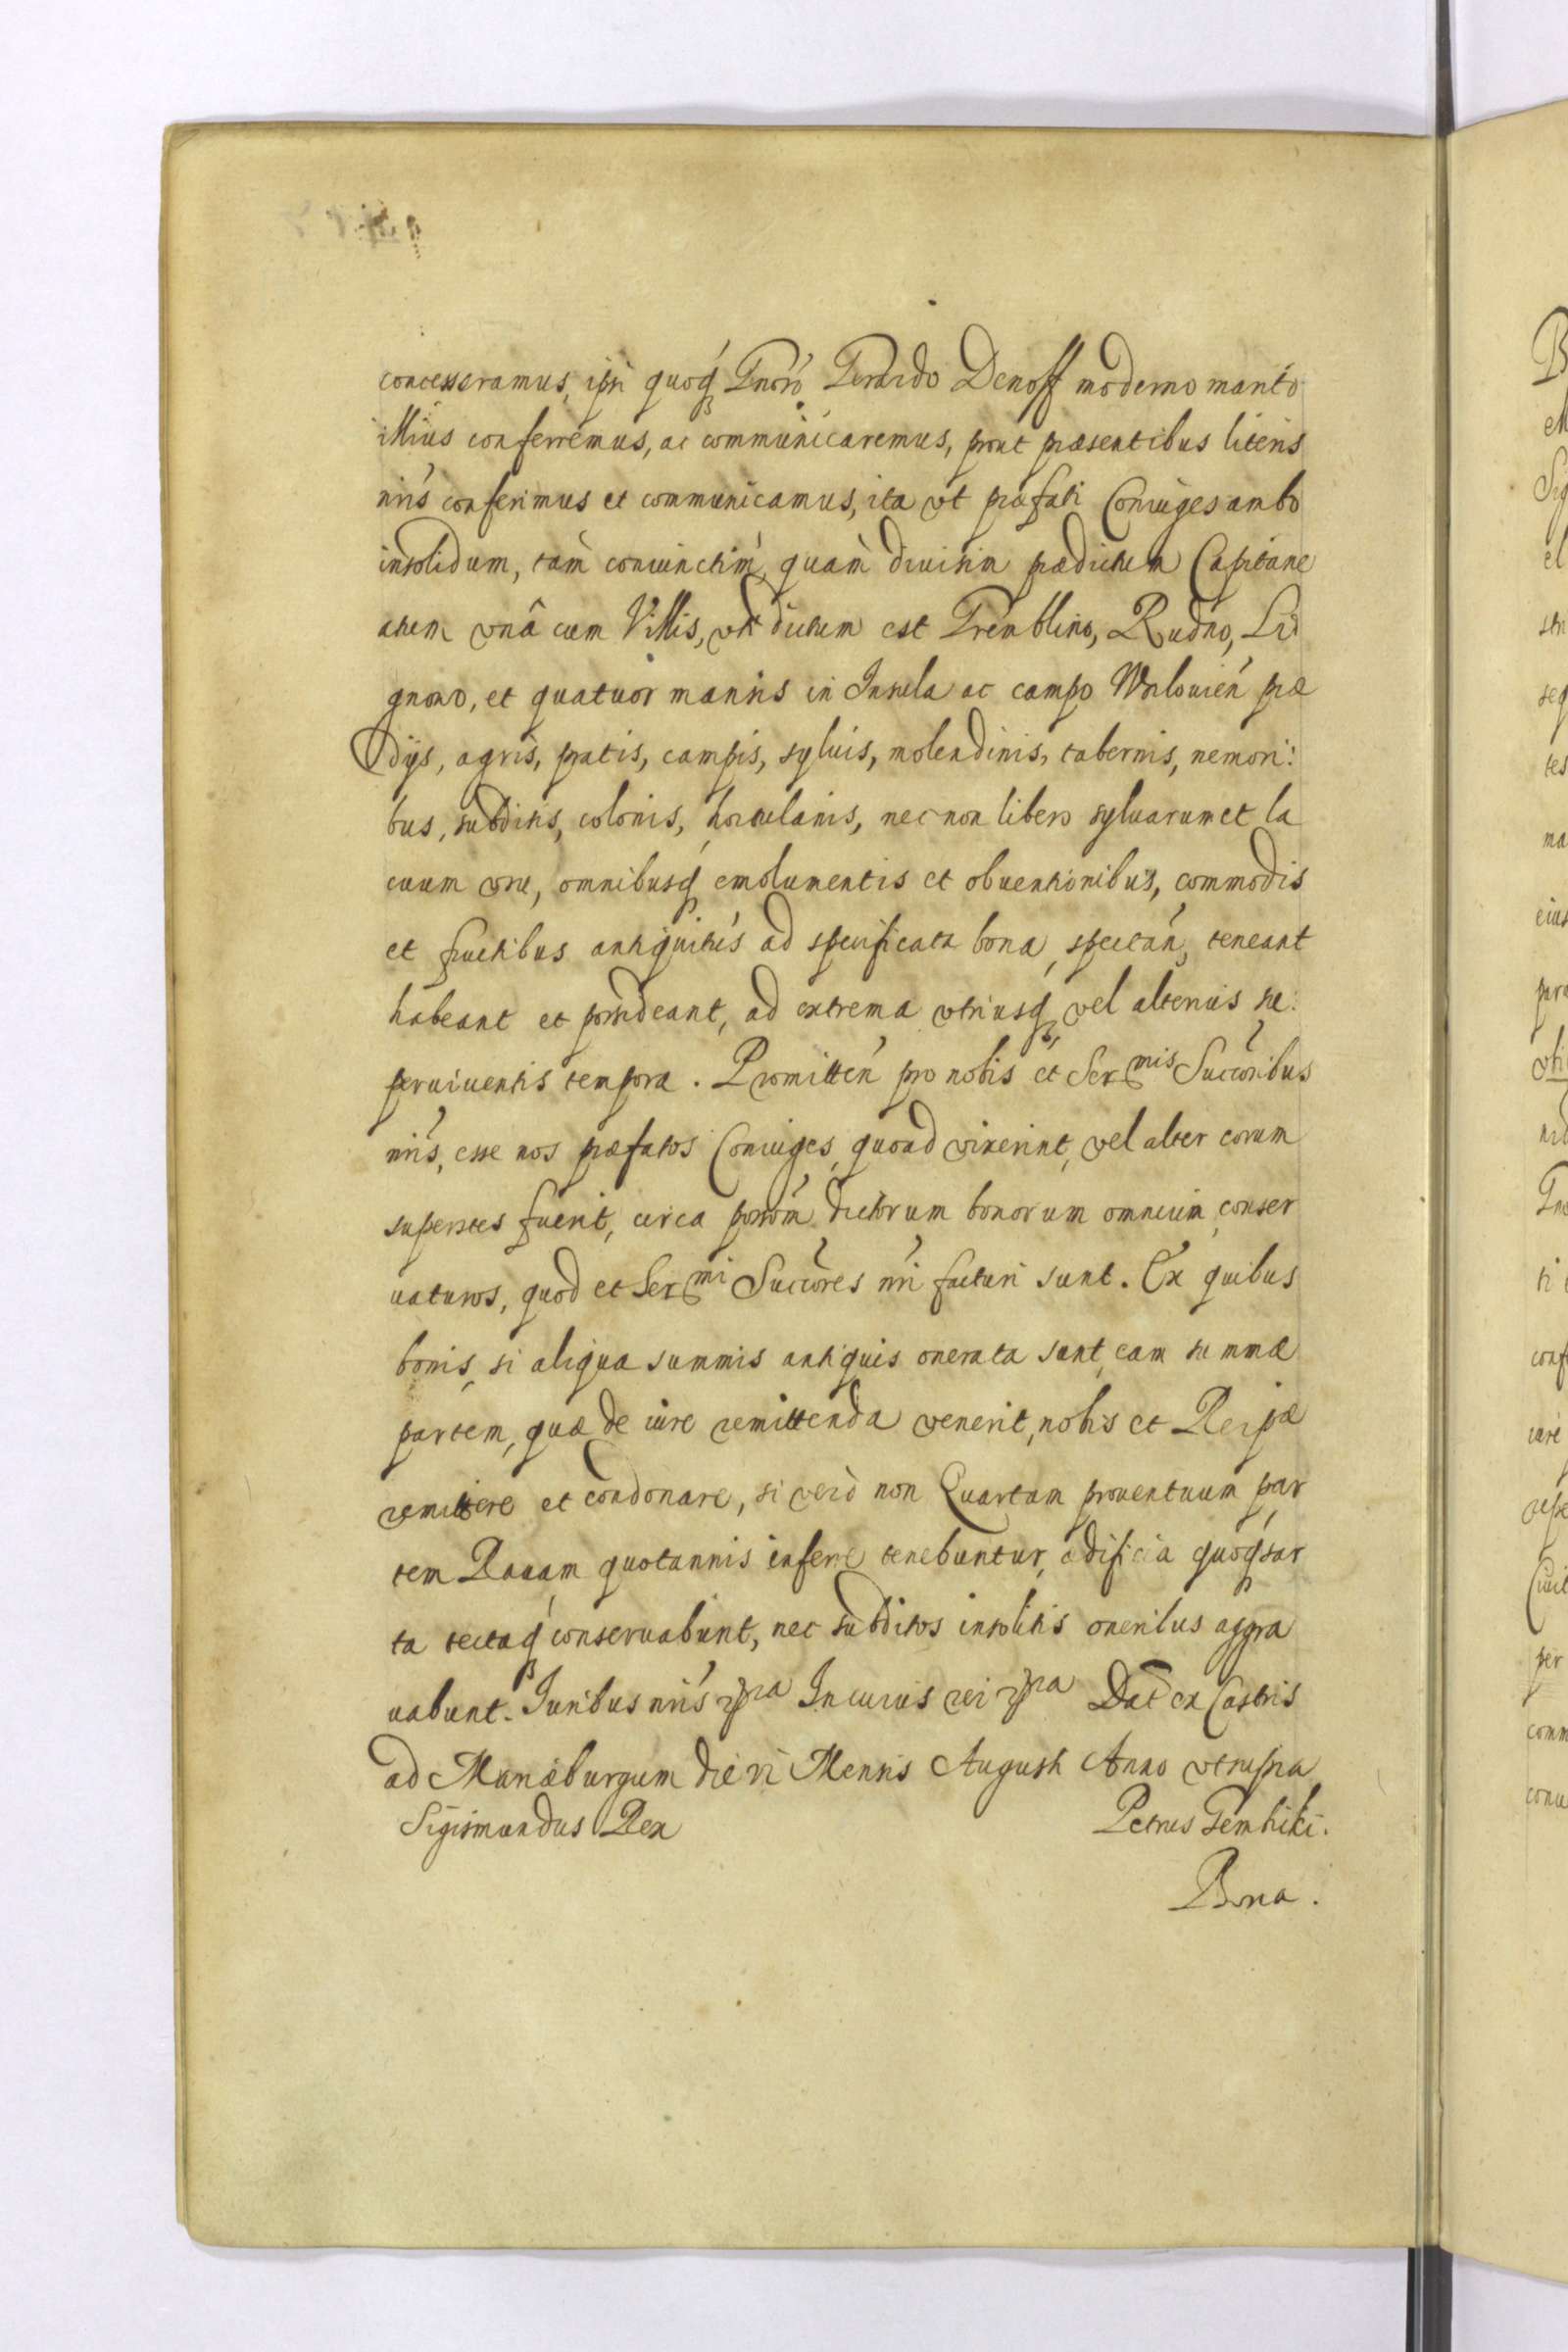 concesseramus, ipsi quoq́ Gnoso Gerardo Denoff moderno marito
illius conferremus, ac communicaremus, prout præsentibus literis
nris conferimus et communicamus, ita vt præfati Coniuges ambo
insolidum, tàm coniunctim, quàm diuisim prædictum Capitane
atum vnâ cum Villis, vti dictum est Tremblino, Rudno, Li
gnowo, et quatuor mansis in Insula ac campo præ
dijs, agris, pratis, campis, syluis, molendinis, tabernis, nemori:
bus, subditis, colonis, hortulanis, nec non libero syluarum et la
cuum vsu, omnibusq́ emolumentis et obuentionibus, commodis
et fructibus antiquitùs ad specificata bona, spectań, teneant
habeant et possideant, ad extrema vtriusq́, vel alterius su:
peruiuentis tempora. Promitteń pro nobis et Ser mis Succoribus
nris, esse nos præfatos Coniuges, quoad vixerint, vel alter eorum
superstes fuerit, circa possom dictorum bonorum omnium conser
uaturos, quod et Ser mi Succores nri facturi sunt. Ex quibus
bonis, si aliqua summis antiquis onerata sunt, eam summæ
partem, quæ de iure remittenda venerit, nobis et Reipæ
remittere et condonare, si verò non Quartam prouentuum par
tem Rauam quotannis inferre tenebuntur, ædificia quoq́ sar
ta tectaq́ conseruabunt, nec subditos insolitis oneribus aggra
uabunt. Iuribus nris In cuius rei Dat ex Castris
ad Mariæburgum die vi Mensis Augusti Anno vt supra
Sigismundus Rex Petrus Gembiki.